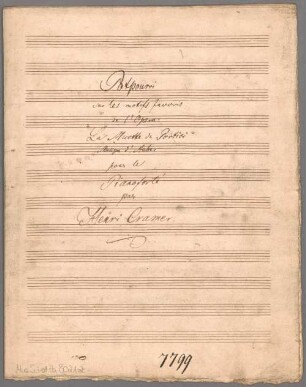 Potpourri
sur les motifs favoris
de l'Opera:
"La Muette de Portici"
Musique d'Auber
pour le
Pianoforté
par
Henri Cramer.
7799